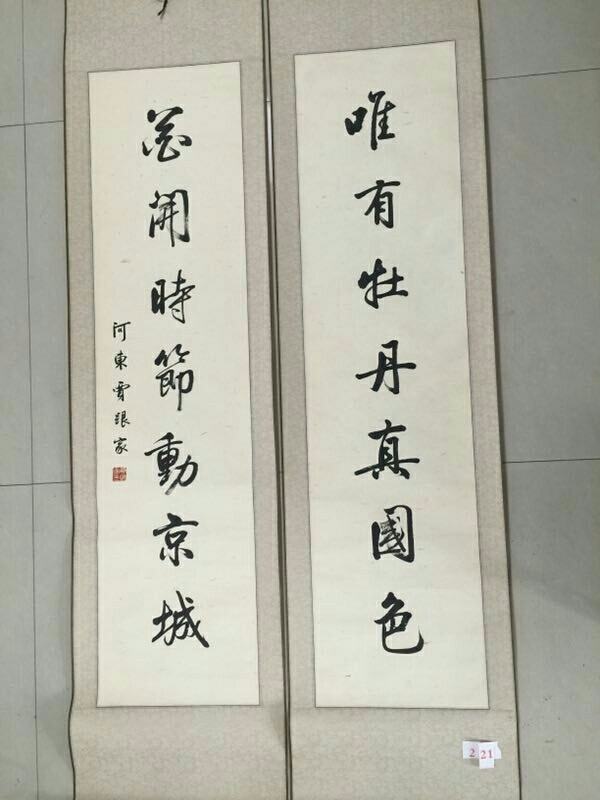 唯有牡丹真國色
花開時節動京城
河東賈家
2 21